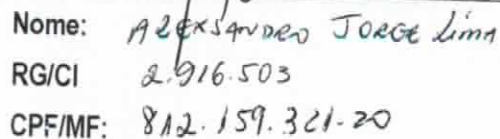 Nome: ALEXSANDRO JORGE Lima
RG/CI 2.916.503
CPF/MF: 812.159.321-20